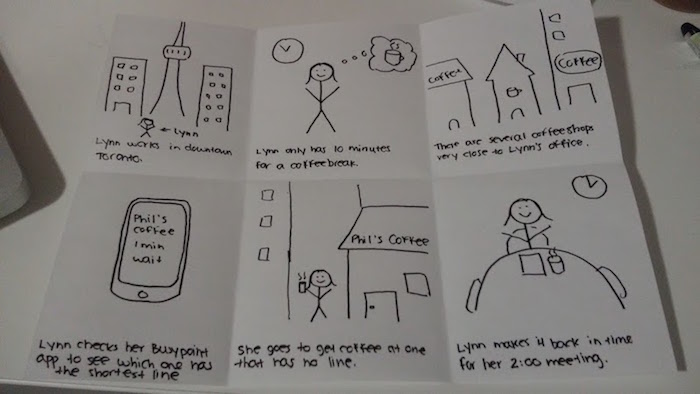 ← Lynn
Lynn works in downtown
Toronto.
Lynn only has 10 minutes
for a coffee break.
Coffee
Coffee
There are several coffee shops
very close to Lynn's office.
Phil's
coffee
1 min
wait
Lynn checks her Busypoint
app to see which one has
the shortest line
Phil's Coffee
She goes to get coffee at one
that has no line.
Lynn makes it back in time
for her 2:00 meeting.